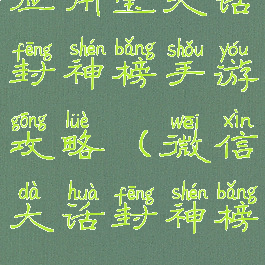 大话
fēng shén bǎng shǒu yóu
封神榜手游
gōng lüè wēi xìn
攻略（微信
dà huà fēng shén bǎng
大话封神榜